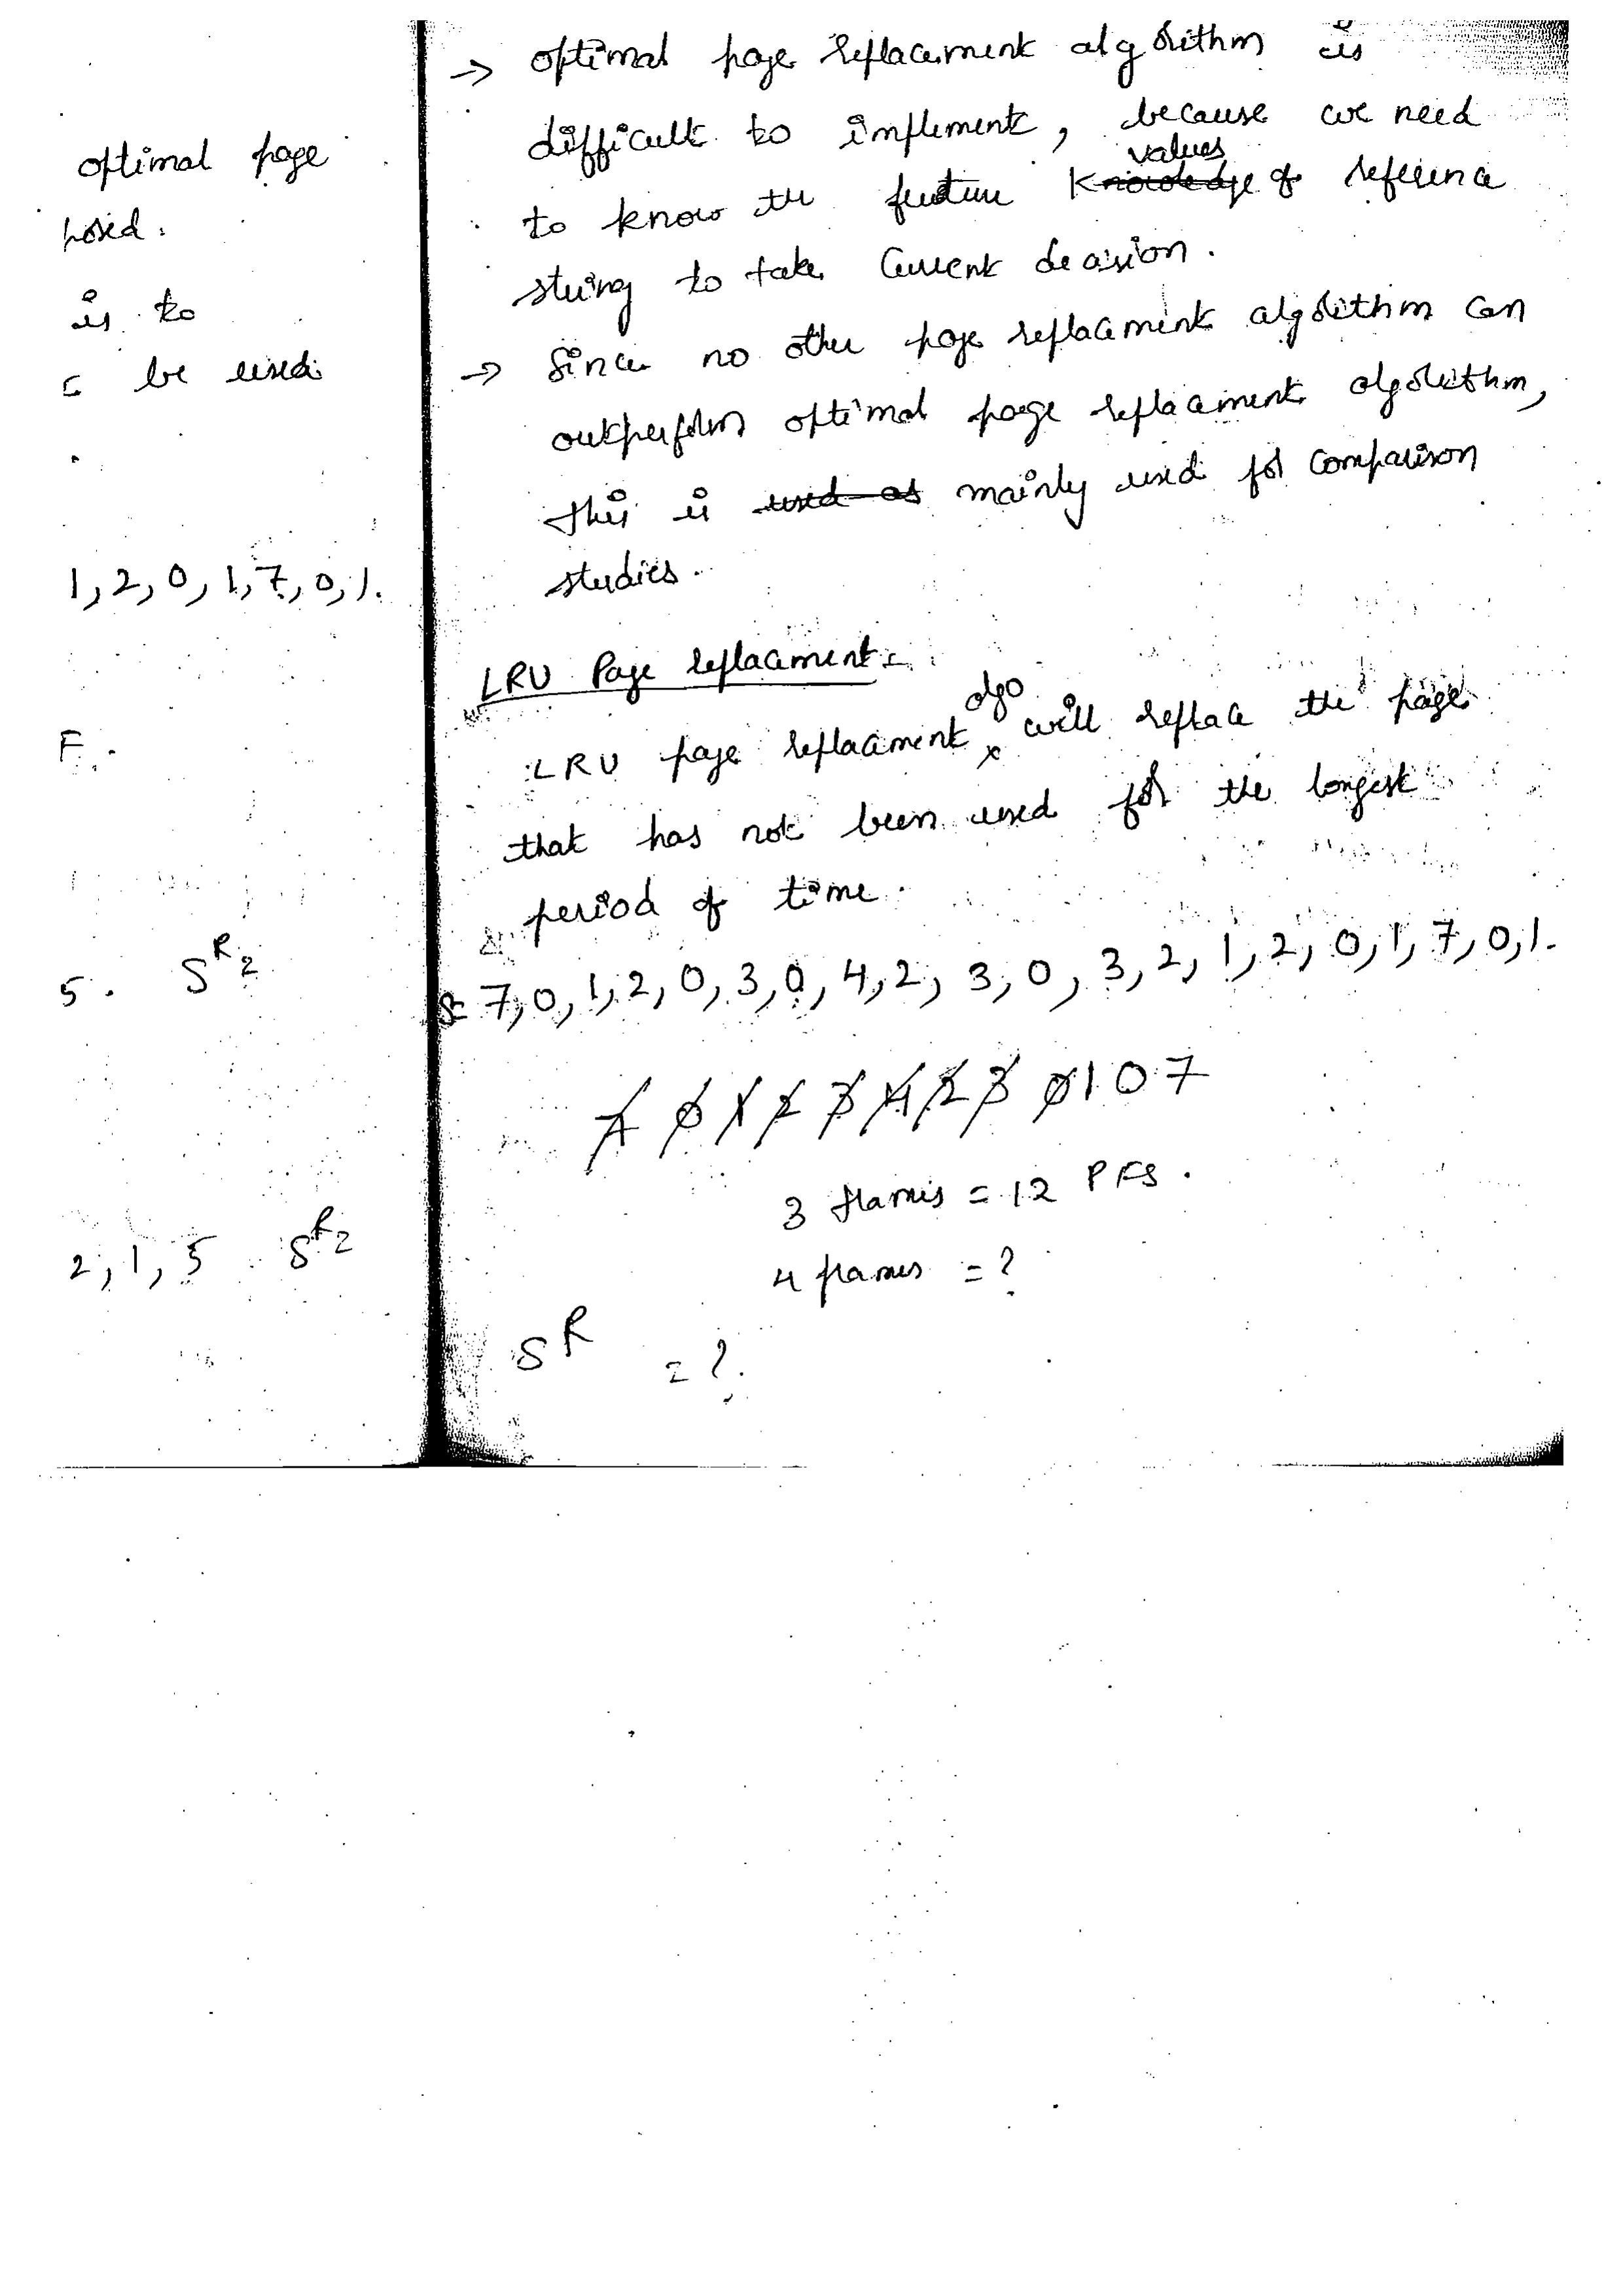 optimal page
posed.
is to
be used
1,2,0,1,7,0,1.
F.
5. S^R_2
2,1,5 S^R_2
→ optimal page replacement algorithm is
difficult to implement, because we need
values
to know the future ~~Knowledge~~ of reference
string to take current decision.
→ Since no other page replacement algorithm can
outperform optimal page replacement algorithm,
this is ~~used as~~ mainly used for comparison
studies.
LRU Page replacement:
algo
LRU page replacement x will replace the page
that has not been used for the longest
period of time.
S: 7,0,1,2,0,3,0,4,2,3,0,3,2,1,2,0,1,7,0,1.
7 0 1 2 3 4 2 3 0 1 0 7
3 frames = 12 PFS.
4 frames = ?
S^R = ?